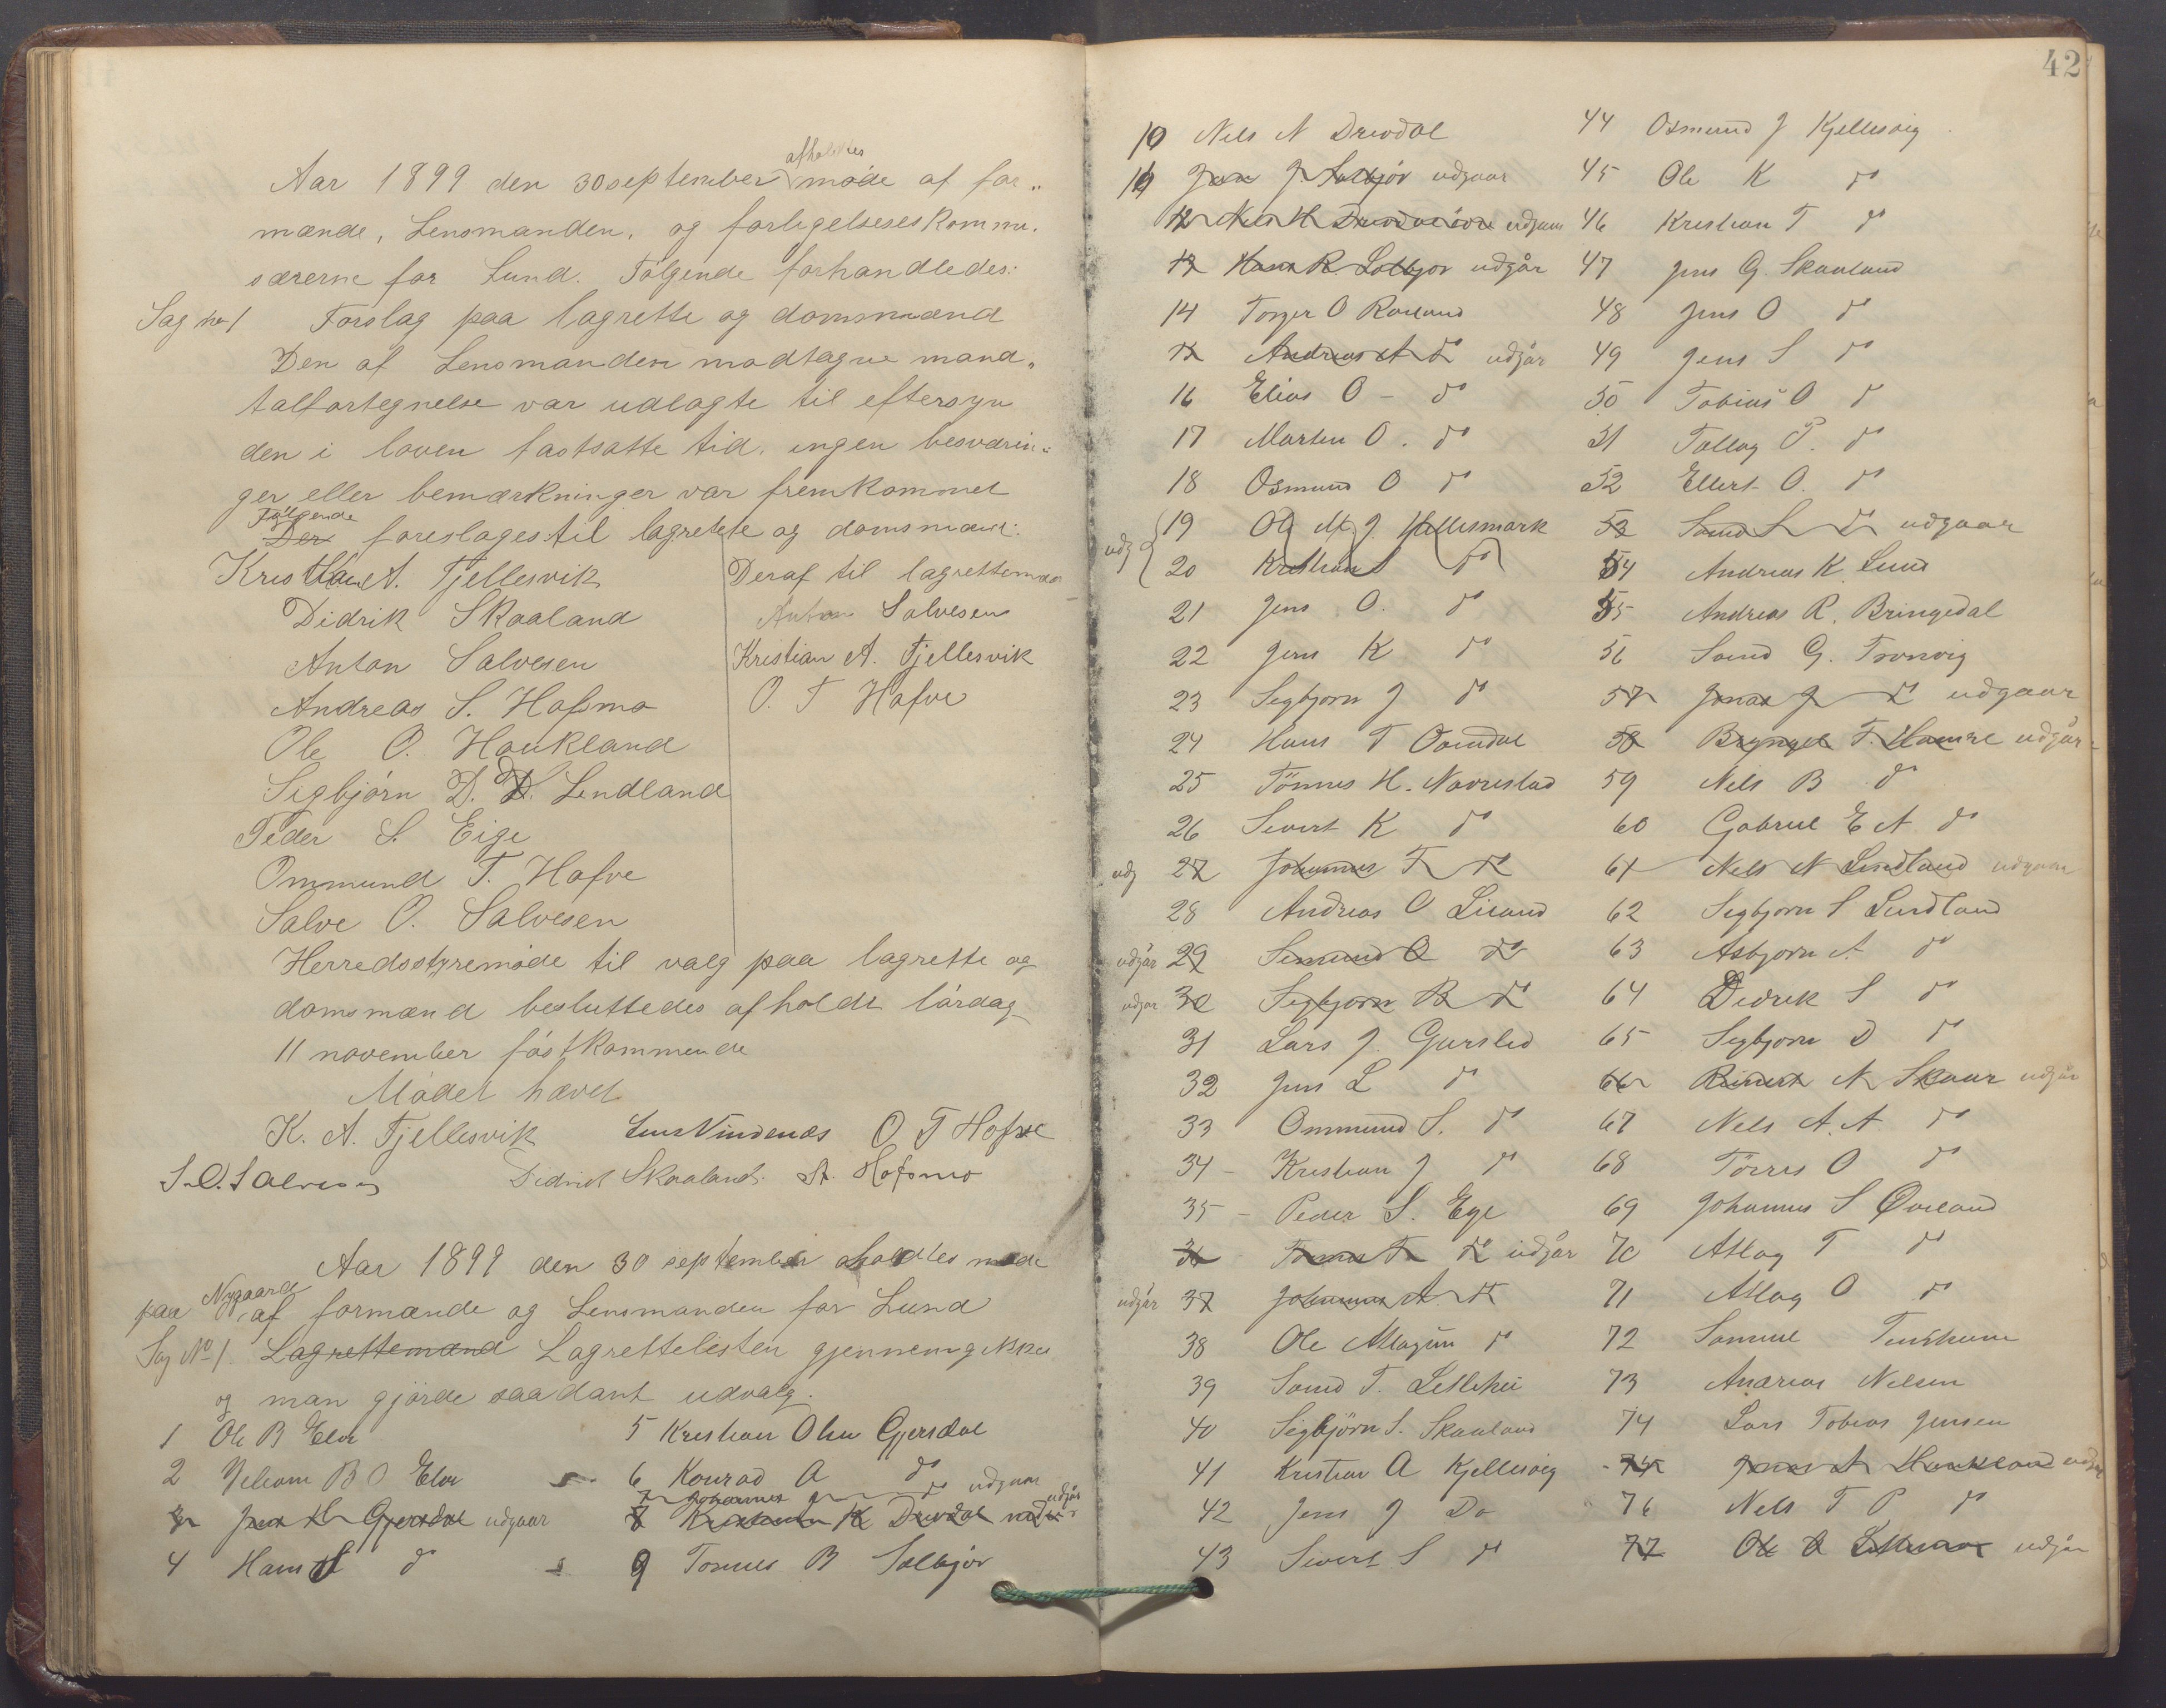 Aar 1899 den 30 september afholdtes møde af for„
mænde, Lensmanden, og forligelseseskommi.
særerne for Lund. Følgende forhandledes:
Sag no 1 Forslag paa lagrette og domsmænd
Den af Lensmanden modtagne mand„
talfortegnelse var udlagte til eftersyn
den i loven fastsatte tid. ingen besværin„
ger eller bemærkninger var fremkommet
Følgende
Der foreslages til lagrette og domsmænd:
Kristian A. Fjellesvik
Didrik Skaaland
Anton Salvesen
Andreas S. Hofsmo
Ole O. Haukland
Segbjørn D. Lendland
Peder S. Eige
Ommund T. Hafve
Salve O. Salvesen
Deraf til lagrettemænd
Anton Salvesen
Kristian A. Fjellesvik
O. T Hafve
Herredsstyremøde til valg paa lagrette og
domsmænd besluttedes afholdt lørdag
11 november førstkommende
Mødet hævet
K. A. Fjellesvik Lars Vindenæs O T Hafve
S. O. Salvesen Didrik Skaaland. A. Hofsmo
Aar 1899 den 30 september aholdtes møde
paa Nygaard af formænde og Lensmanden for Lund
Sag No 1. Lagrettemænd Lagrettelisten gjennemgikkes
og man gjørde saadant udvalg.
1 Ole B Elve
2 B O Elve
3 Jens H Gjersdal udgaar
4 Hans S do
5 Kristian Olsen Gjersdal
6 Konrad A do
7 Johannes J do udgaar
8 Kristian K Drevdal udgår
9 Tønnes B Salbjør
42
10 Nels N Drevdal
11 Jens J Salbjør udgaar
12 Nels H Drevdal udgaar
13 Hans R. Salbjør udgår
14 Torger O Rosland
15 Andreas A do udgår
16 Elias O - do
17 Martin O. do
18 Osmund O do
udg
19 Ole M. J. Hellesmark
20 Kristian S do
21 Jens O. do
22 Jens K do
23 Segbjørn J do
24 Hans T Ovendal
25 Tönnes H. Navrestad
26 Sivert K do
udg 27 Johannes T do
28 Andreas O Liland
udgår 29 Simund O do
udgår 30 Segbjørn B do
31 Lars J. Gursled
32 Jens L do
33 Ommund S. do
34 - Kristian J do
35 - Peder S. Ege
36 Tønnes T do udgår
udgår 37 Johannes A do
38 Ole Atlagsen do
39 Søvid T. Letlehei
40 Segbjörn S. Skaaland
41 Kristian A Kjellesvig
42 Jens J Do
43 Sivert S do
44 Osmund J Kjellesvig
45 Ole K do
46 Kristian T do
47 Jens G. Skaaland
48 Jens O do
49 Jens S do
50 Tobias O do
51 Tollag P. do
52 Ellert O. do
53 Søvid S do udgaar
54 Andreas K. Lund
55 Andreas R. Bringedal
56 Søvid G. Tronvig
57 Jonas J do udgaar
58 Bryngel T. Hamre udgår
59 Nils B do
60 Gabriel E A do
61 Nels N Lindland udgaar
62 Segbjørn S Lindland
63 Asbjørn A do
64 Didrik S do
65 Segbjørn D do
66 Reinert N Skaar udgår
67 Nels A. A. do
68 Törres O do
69 Johannes S Øvrland
70 Atlag T do
71 Atlag O do
72 Samuel
73 Andreas Nilsen
74 Lars Tobias Jensen
75 Jonas A Haukland udgår
76 Nels T P do
77 Ole O udgår